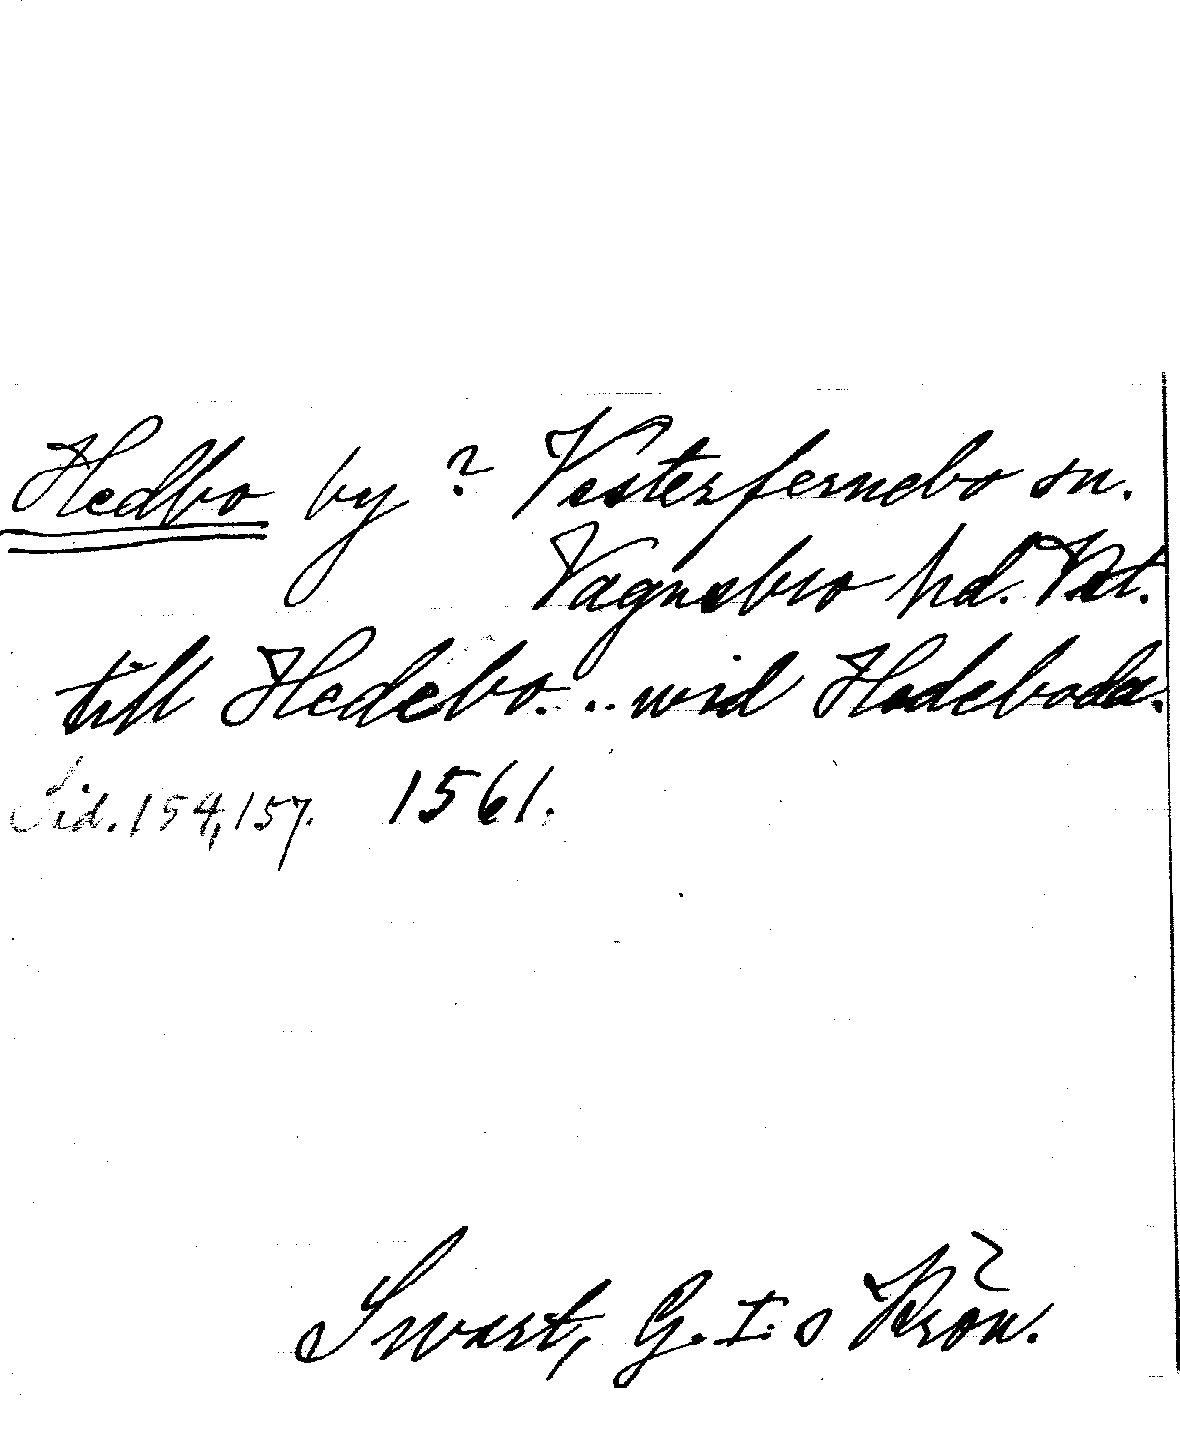 Hedbo by? Vesterfernebo sn.
Vagnsbro hd. Vst.
till Hedebo... wid Hedeboda.
Sid. 154, 157. 1561.
Swart, G. I:s Krön.